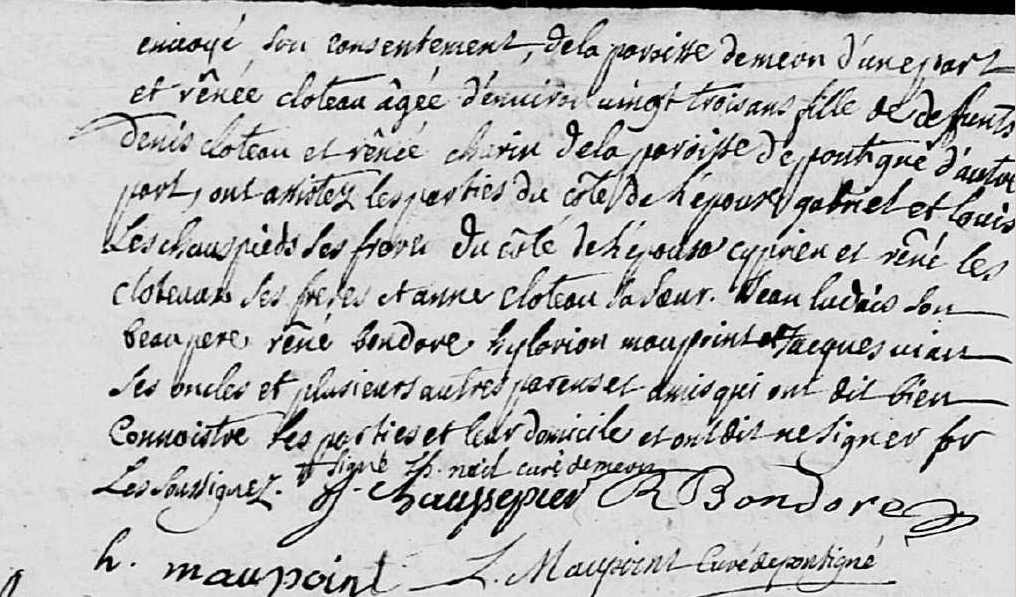 envoyé son consentement, dela paroisse demeon d'unepart
et rênée cloteau âgée d'environ vingt trois ans fille de deffunts
Denis cloteau et rênée charin dela paroisse depontigné d'autre
part, ont assistez les parties du côté de l'époux gabriel et louis
Leschauspieds ses freres du côté de l'épouse cyprien et rêné les
cloteaux ses freres et anne cloteau sa sœur. Jean ludais son
beaupere rêné bondore hylarion maupoint et Jacques
ses oncles et plusieurs autres parens et amis qui ont dit bien
Connoistre les parties et leur domicile et ont dit ne signer for
Les soussignez. signé curé demeon
g. chaussepier R Bondore
h. maupoint L. Maupoint Curé depontigné